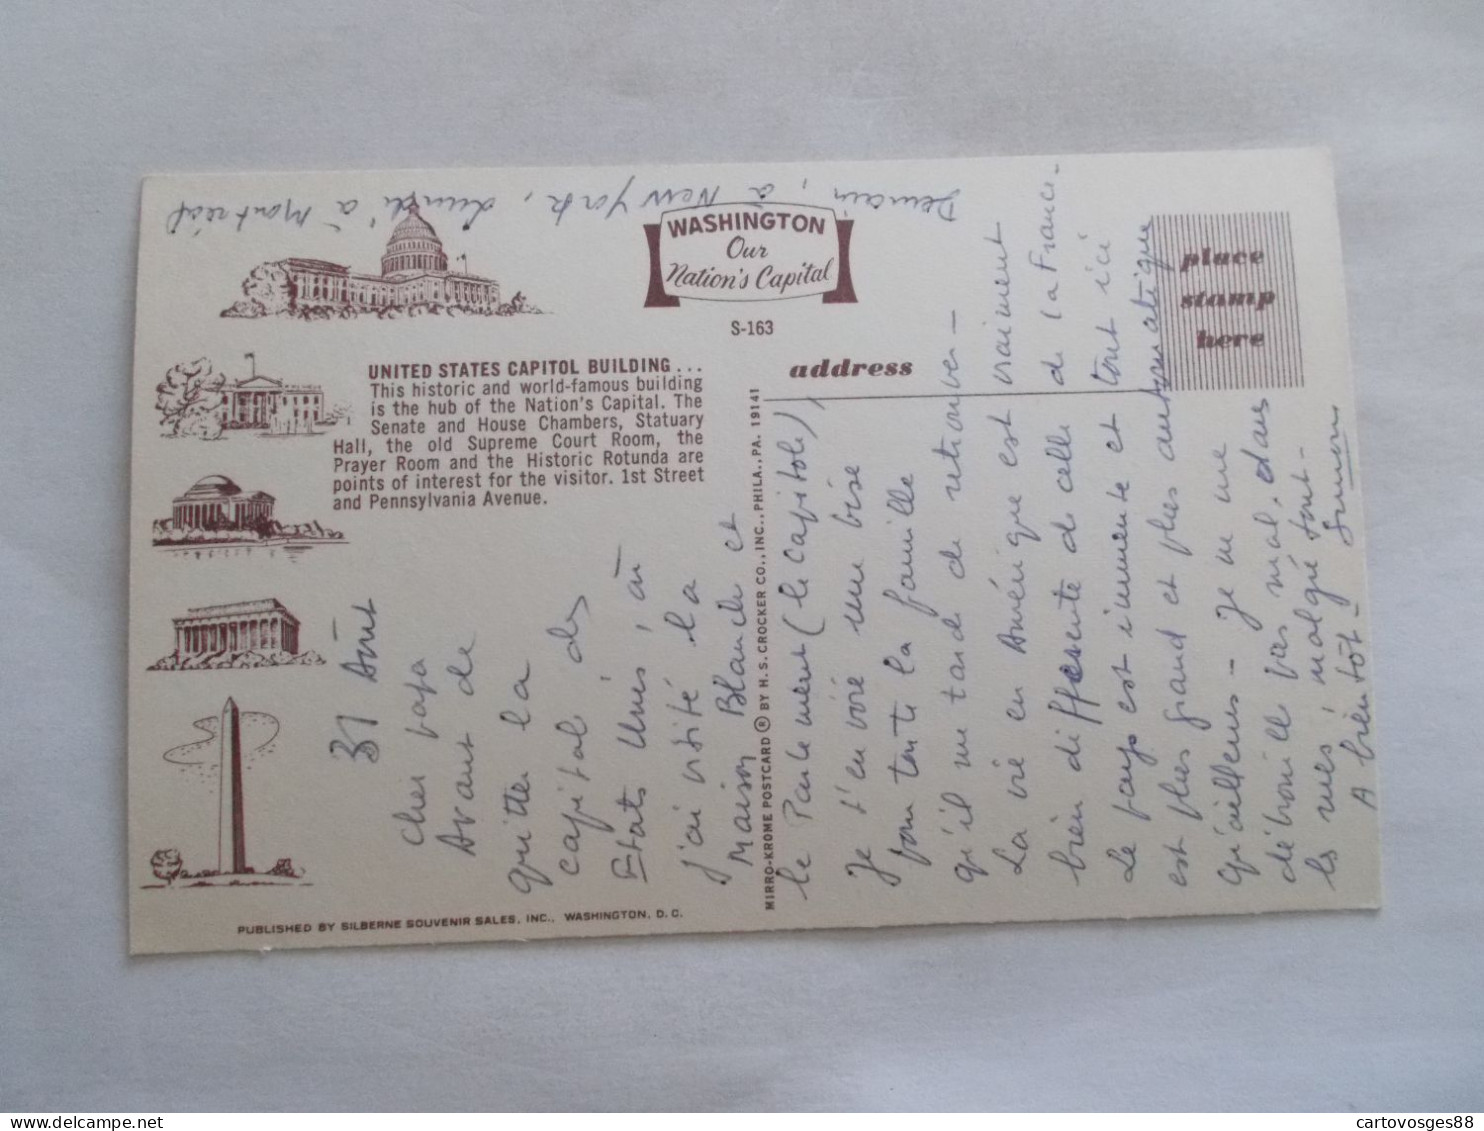 WASHINGTON
Our
Nation's Capital
S-163
place
stamp
here
address
UNITED STATES CAPITOL BUILDING . . .
This historic and world-famous building
is the hub of the Nation's Capital. The
Senate and House Chambers, Statuary
Hall, the old Supreme Court Room, the
Prayer Room and the Historic Rotunda are
points of interest for the visitor. 1st Street
and Pennsylvania Avenue.
MIRRO-KROME POSTCARD ® BY H. S. CROCKER CO., INC., PHILA., PA. 19141
PUBLISHED BY SILBERNE SOUVENIR SALES, INC., WASHINGTON, D. C.
31 Août
Cher papa
Avant de
quitter la
capitale des
Etats Unis, où
j'ai visité la
Maison Blanche et
le Parlement (le Capitole),
Je t'envoie une bise
pour toute la famille
qu'il me tarde de retrouver -
La vie en Amérique est vraiment
bien différente de celle de la France -
Le pays est immense et tout ici
est plus grand et plus automatique
qu'ailleurs - Je ne me
débrouille pas mal, dans
les rues, malgré tout -
A bientôt - Simon
Demain, à New York, Lundi à Montréal
cartovosges88